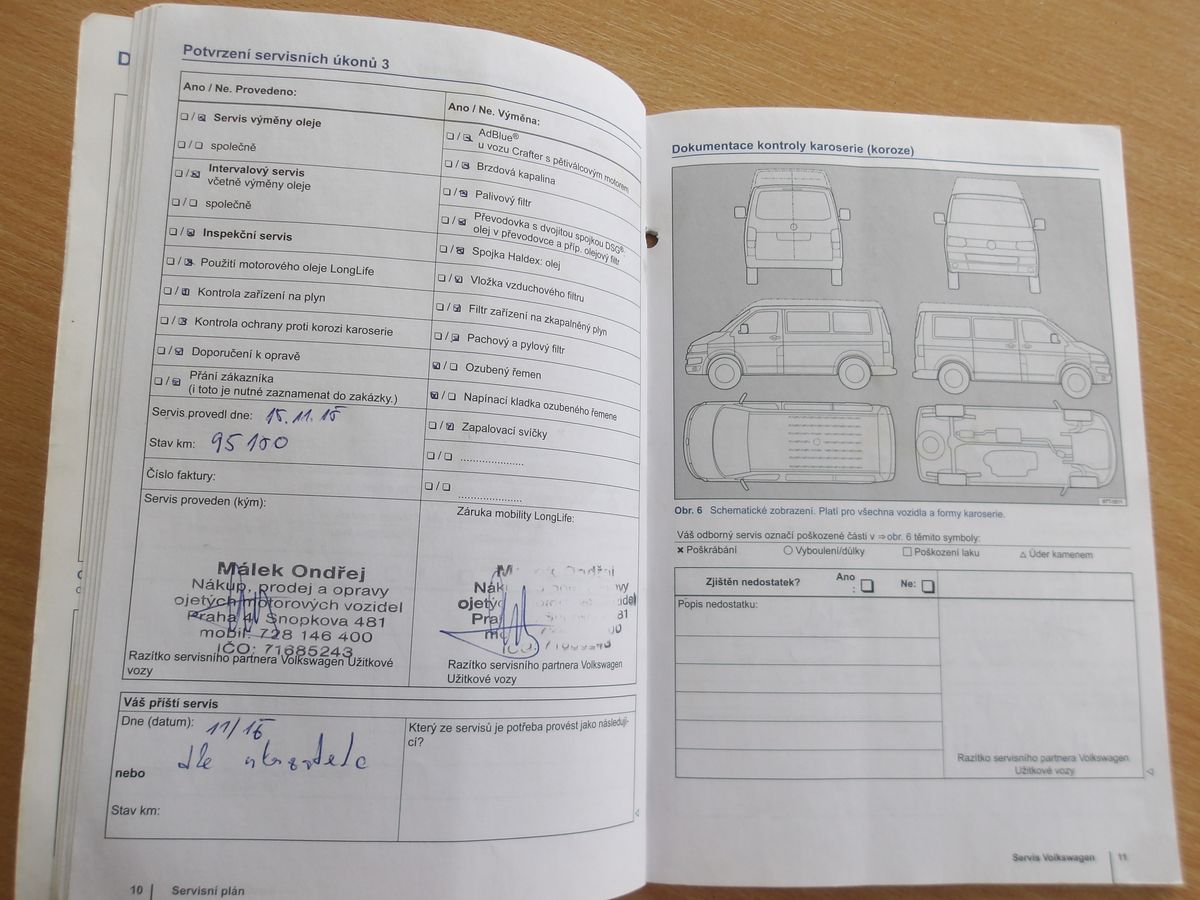 Potvrzení servisních úkonů 3
Ano / Ne. Provedeno:
Servis výměny oleje
společně
Intervalový servis
včetně výměny oleje
společně
Inspekční servis
Použití motorového oleje LongLife
Kontrola zařízení na plyn
Kontrola ochrany proti korozi karoserie
Doporučení k opravě
Přání zákazníka
(i toto je nutné zaznamenat do zakázky.)
Servis provedl dne: 15.11.15
Stav km: 95100
Číslo faktury:
Servis proveden (kým):
Málek Ondřej
Nákup, prodej a opravy
ojetých motorových vozidel
Praha 4, Snopkova 481
mobil: 728 146 400
IČO: 71685243
Razítko servisního partnera Volkswagen Užitkové
vozy
Ano / Ne. Výměna:
AdBlue®
u vozu Crafter s pětiválcovým motorem
Brzdová kapalina
Palivový filtr
Převodovka s dvojitou spojkou DSG®:
olej v převodovce a příp. olejový filtr
Spojka Haldex: olej
Vložka vzduchového filtru
Filtr zařízení na zkapalněný plyn
Pachový a pylový filtr
Ozubený řemen
Napínací kladka ozubeného řemene
Zapalovací svíčky
Záruka mobility LongLife:
Razítko servisního partnera Volkswagen
Užitkové vozy
Váš příští servis
Dne (datum): 11/16
dle
nebo
Stav km:
Který ze servisů je potřeba provést jako následují-
cí?
10 | Servisní plán
Dokumentace kontroly karoserie (koroze)
Obr. 6 Schematické zobrazení. Platí pro všechna vozidla a formy karoserie.
Váš odborný servis označí poškozené části v ⇒ obr. 6 těmito symboly:
× Poškrábání ○ Vyboulení/důlky □ Poškození laku △ Úder kamenem
Zjištěn nedostatek? Ano : Ne:
Popis nedostatku:
Razítko servisního partnera Volkswagen
Užitkové vozy
Servis Volkswagen | 11